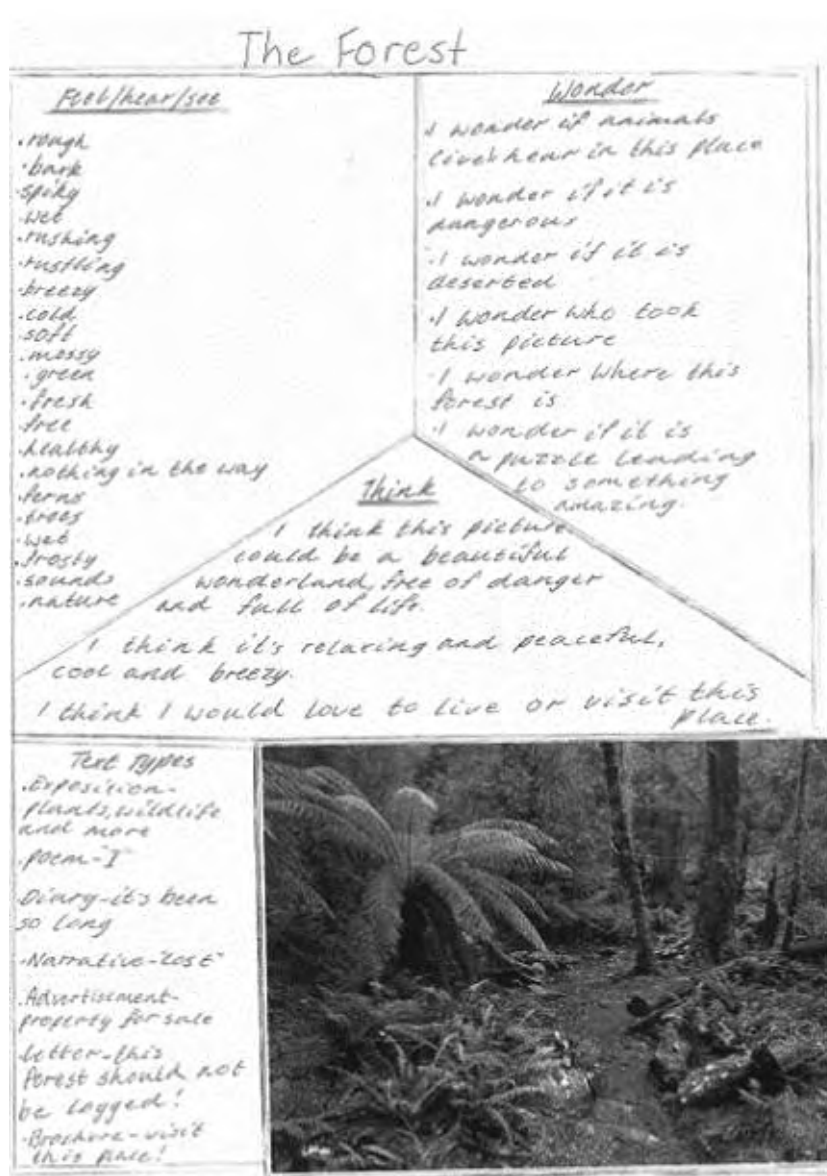 The Forest
Feel/hear/see
.rough
.bark
spiky
.wet
.rushing
.rustling
.breezy
.cold
.soft
.mossy
.green
.fresh
.free
.healthy
.nothing in the way
.ferns
.trees
.wet
.frosty
.sounds
.nature
Wonder
.I wonder if animals
live hear in this place
.I wonder if it is
dangerous
.I wonder if it is
deserted
.I wonder who took
this picture
.I wonder where this
forest is
.I wonder if it is
a puzzle leading
to something
amazing.
Think
I think this picture
could be a beautiful
wonderland, free of danger
and full of life.
I think it's relaxing and peaceful,
cool and breezy.
I think I would love to live or visit this
place.
Text Types
.Exposition-
plants, wildlife
and more
.poem-"I"
.Diary-it's been
so long
.Narrative-"Lost"
.Advertisement-
property for sale
.letter-this
forest should not
be logged!
.Brochure-visit
this place!